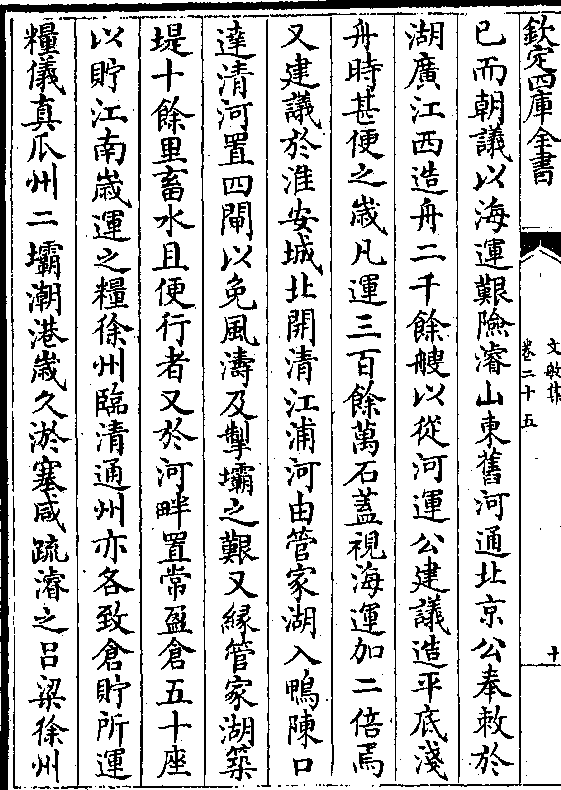 欽定四庫全書
文敏集
卷二十五
十
已而朝議以海運艱險濬山東舊河通北京公奉敕於
湖廣江西造舟二千餘艘以從河運公建議造平底淺
舟時甚便之歲凡運三百餘萬石蓋視海運加二倍焉
又建議於淮安城北開清江浦河由管家湖入鴨陳口
達清河置四閘以免風濤及掣壩之艱又緣管家湖築
堤十餘里畜水且便行者又於河畔置常盈倉五十座
以貯江南歲運之糧徐州臨清通州亦各致倉貯所運
糧儀真瓜州二壩潮港歲久淤塞咸疏濬之吕梁徐州